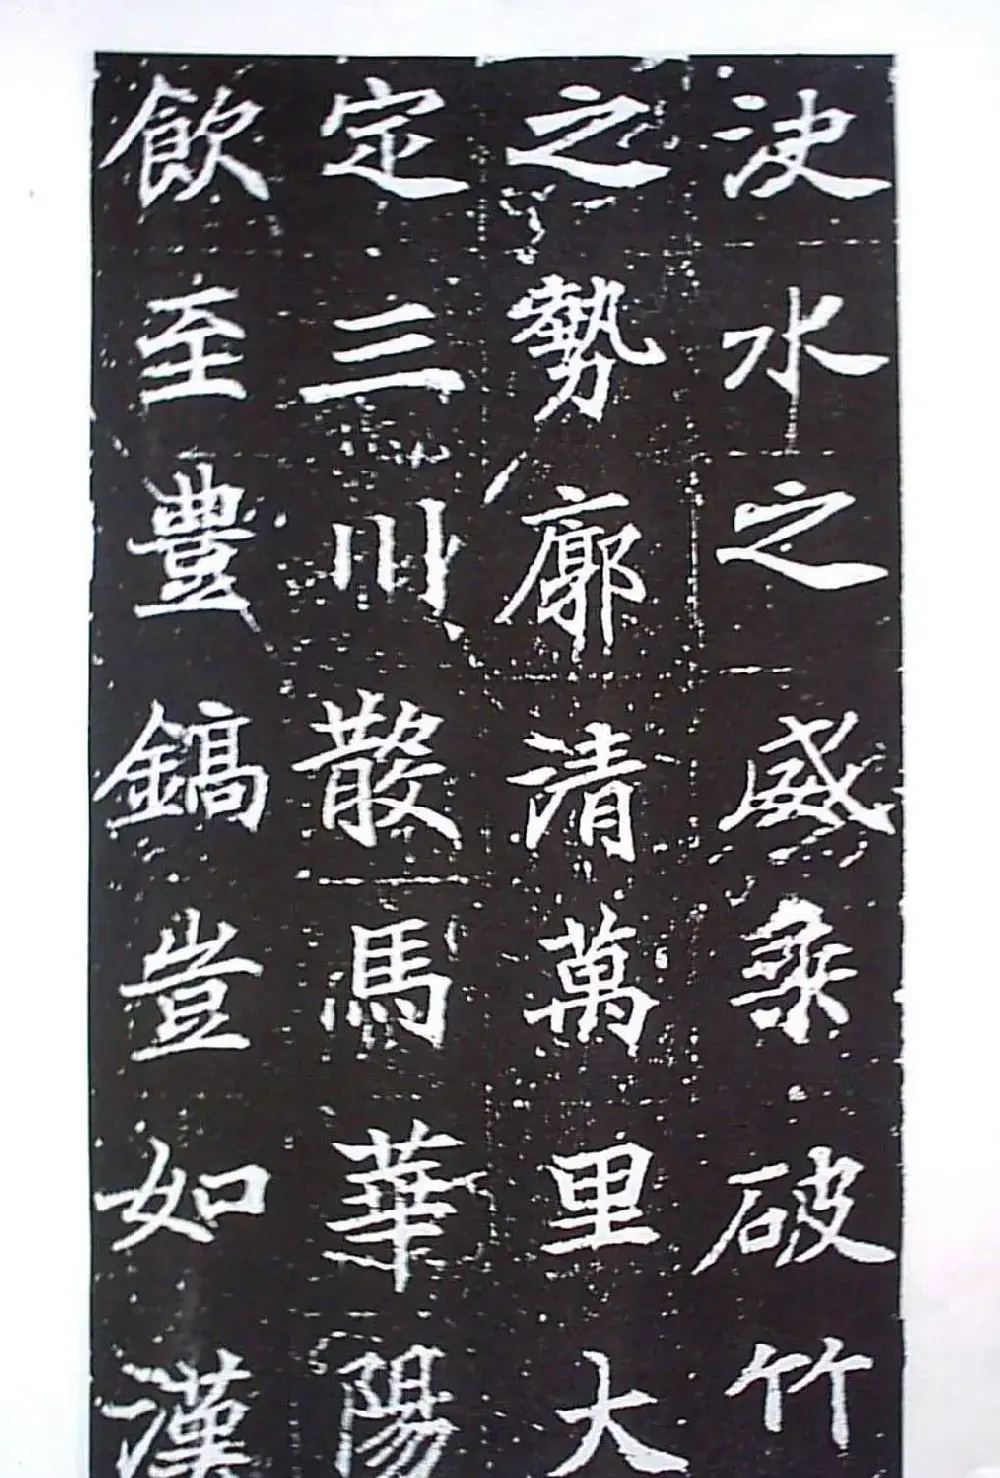 決水之威乘破竹
之勢廓清萬里大
定三川散馬華陽
飲至豐鎬豈如漢